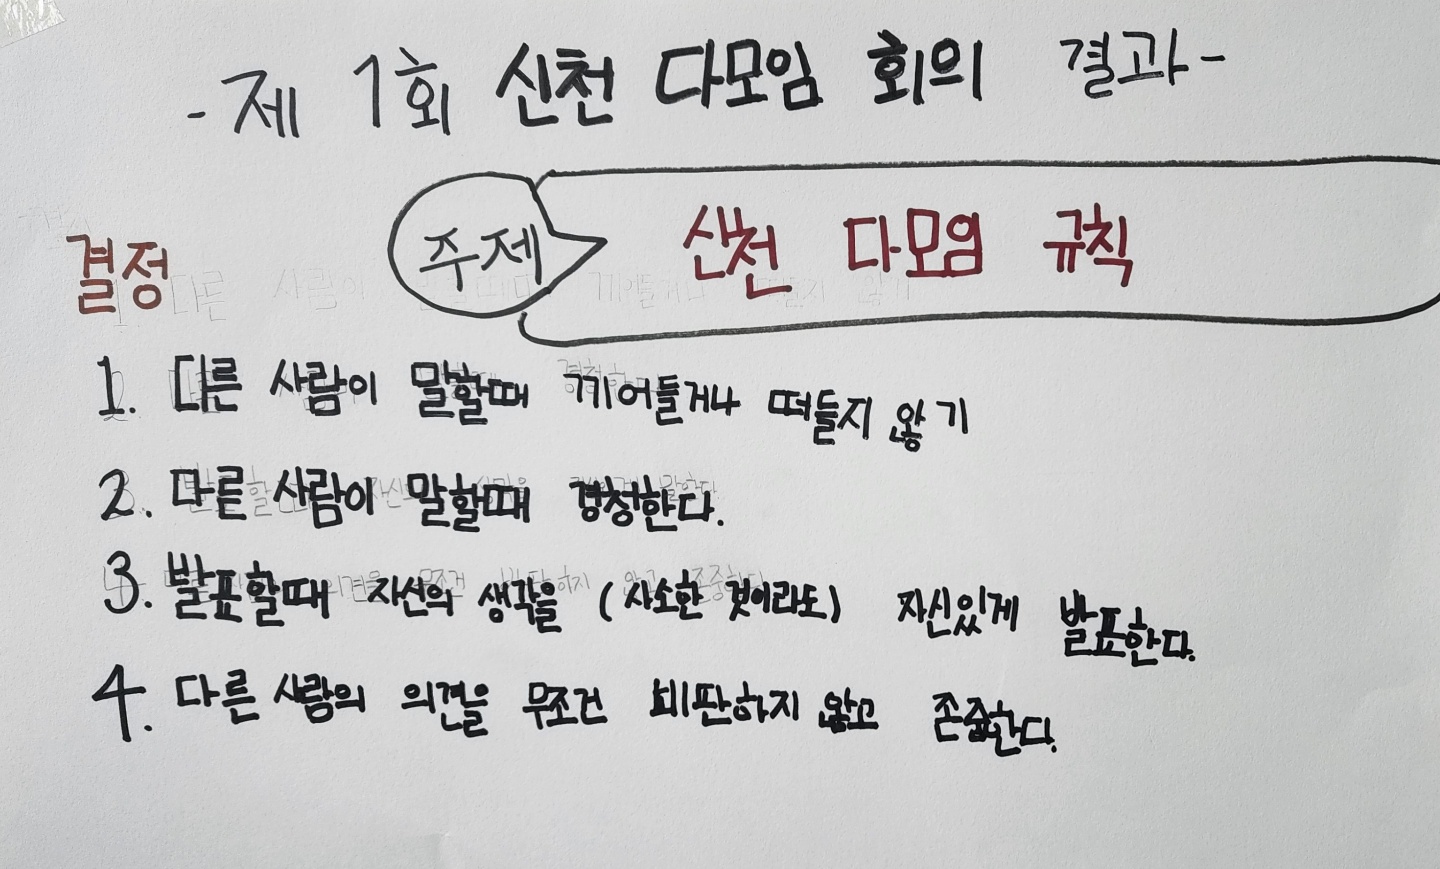 - 제 1회 신천 다모임 회의 결과 -
주제 신천 다모임 규칙
결정
1. 다른 사람이 말할때 끼어들거나 떠들지 않기
2. 다른 사람이 말할때 경청한다.
3. 발표할때 자신의 생각을 (사소한 것이라도) 자신있게 발표한다.
4. 다른 사람의 의견을 무조건 비판하지 않고 존중한다.